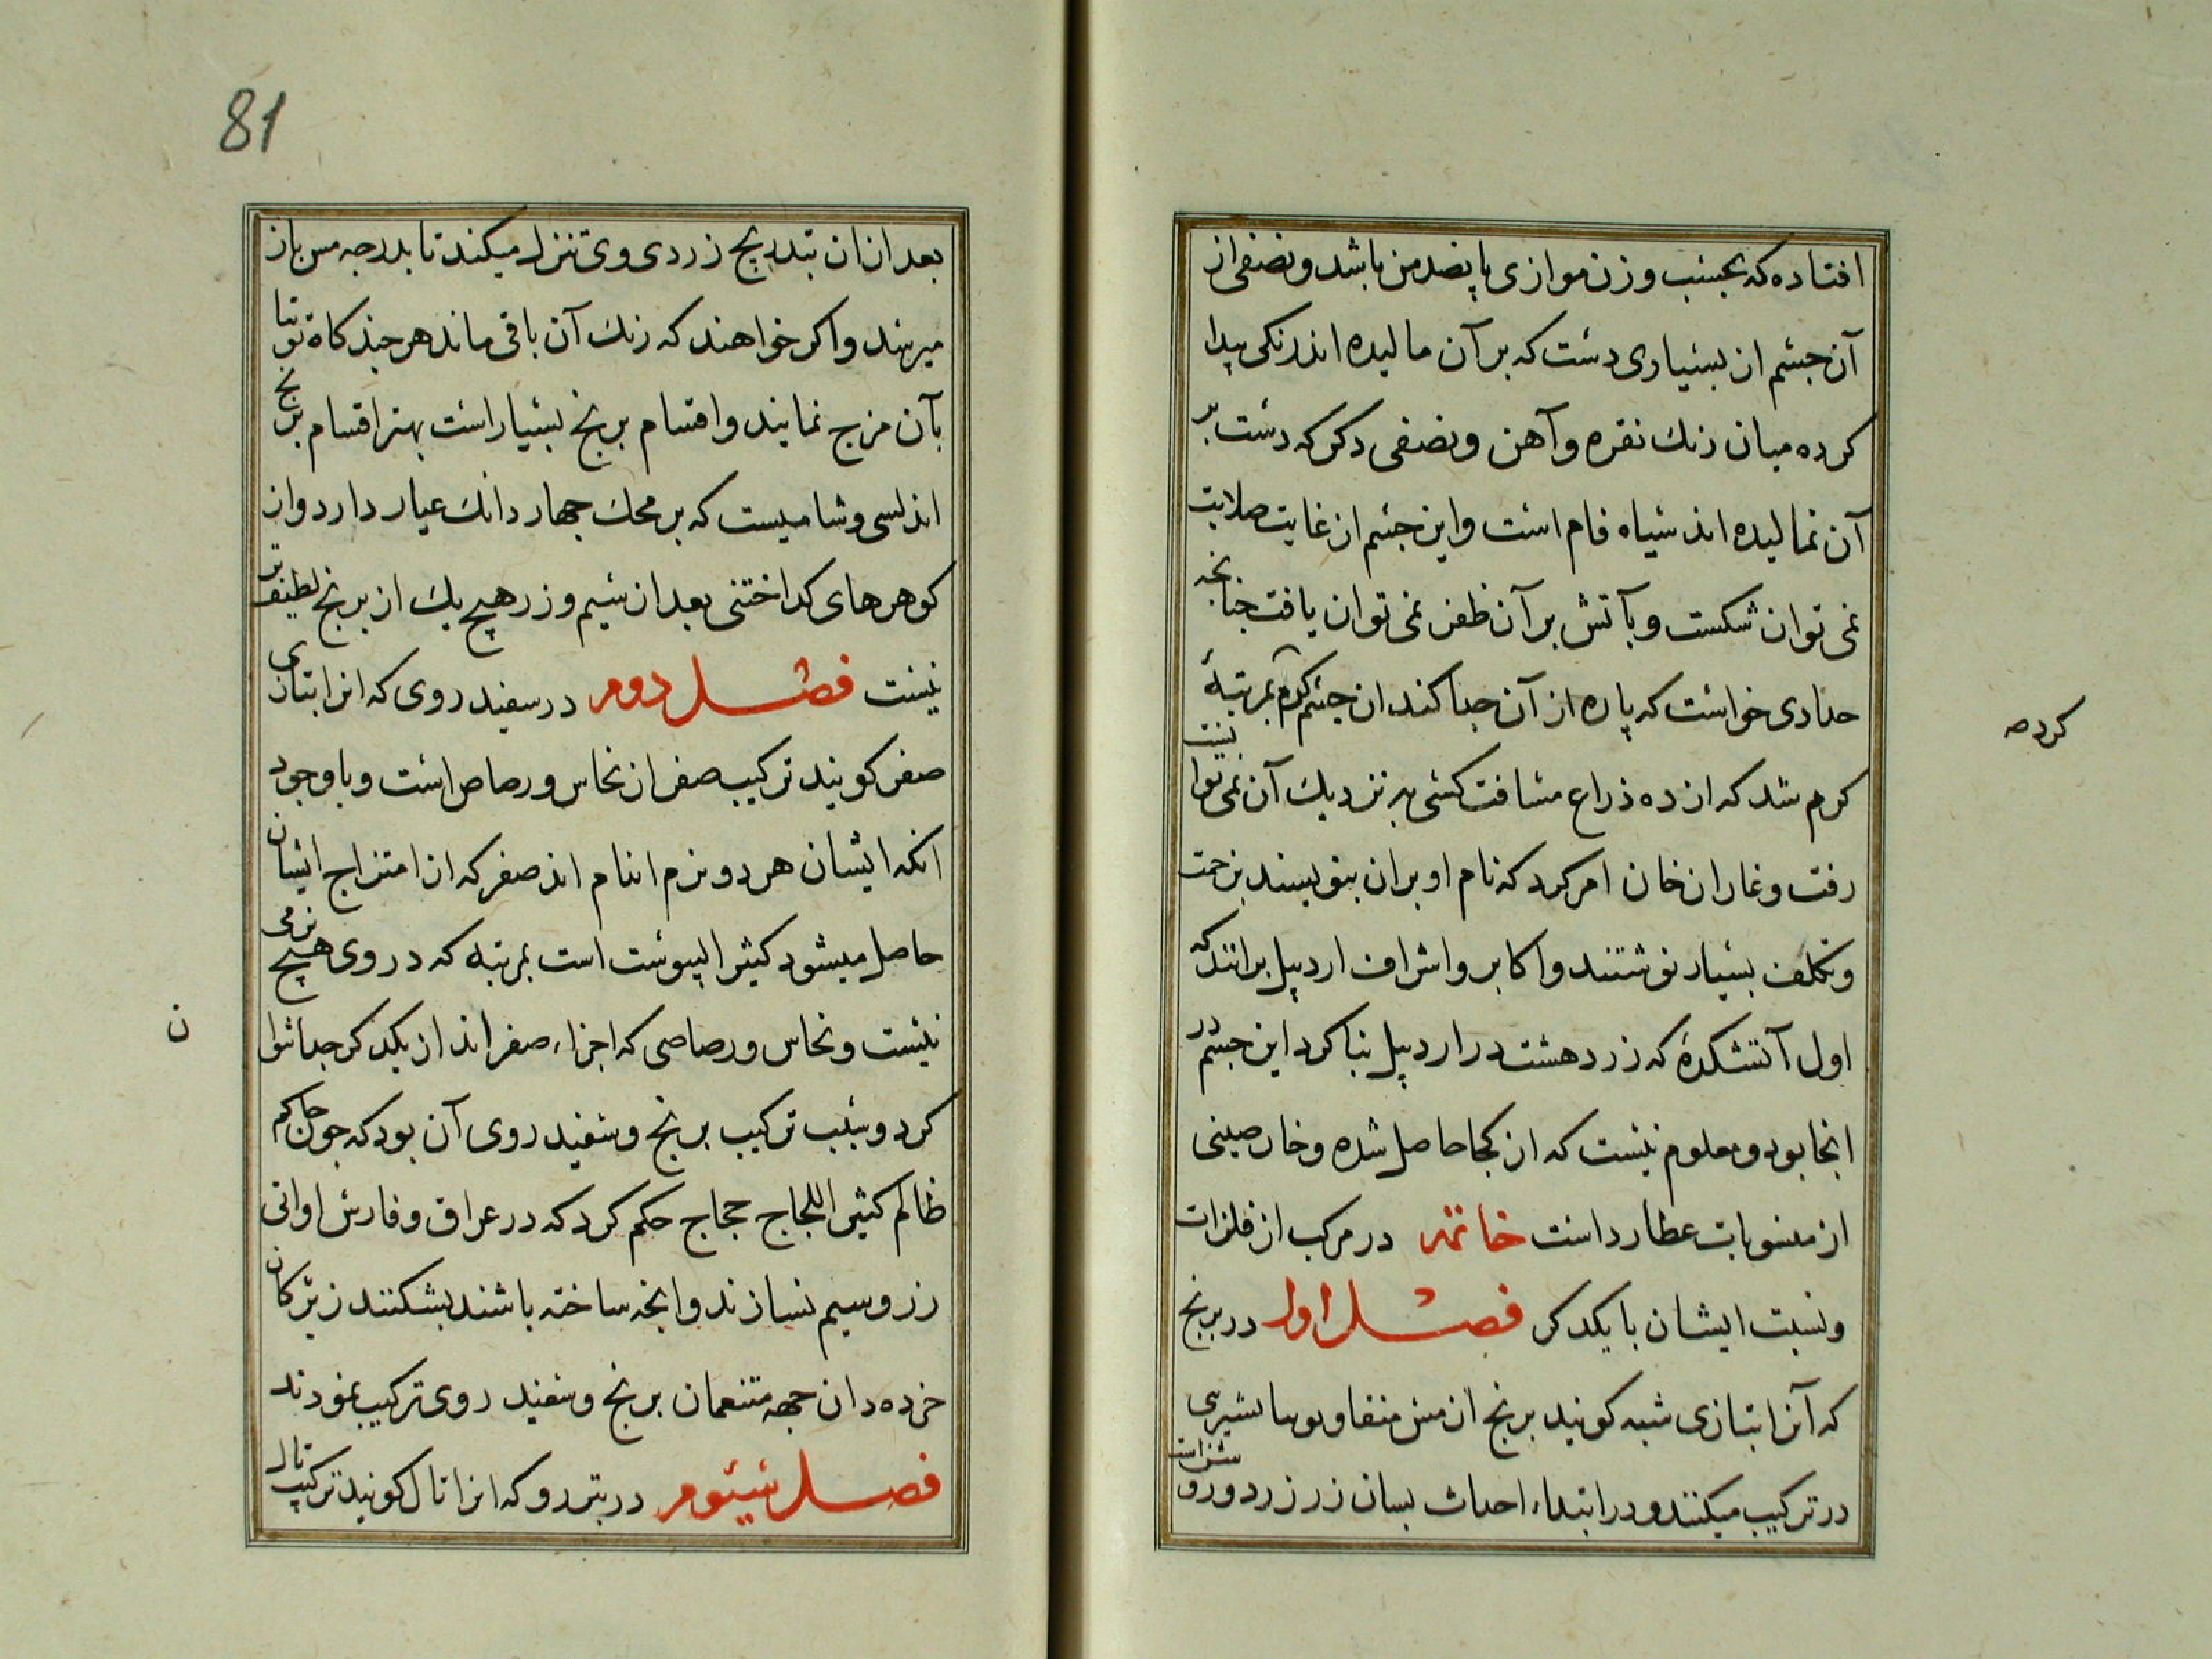 افتاده که بحسب وزن موازی پانصد من باشد و نصفی از
آن جسم از بسیاری دست که بر آن مالیده اند رنکی پیدا
کرده میان رنك نقره و آهن و نصفی دکر که دست بر
آن نمالیده اند سیاه فام است و این جسم از غایت صلابت
نمی توان شکست و بآتش بر آن ظفر نمی توان یافت جنانجه
حدادی خواست که پاره از آن جدا کند ان جسم کرم بمرتبهٔ
کرده
کرم شد که از ده ذراع مسافت کسی به نزدیك آن نمی توانست
رفت و غازان خان امر کرد که نام او بران بنویسند بزحمت
و تکلف بسیار نوشتند و اکابر و اشراف اردبیل برانند که
اول آتشکدهٔ که زردهشت در اردبیل بنا کرد این جسم در
انجا بود و معلوم نیست که از کجا حاصل شده و خارصینی
از منسوبات عطارد است خاتمه در مرکب از فلزات
و نسبت ایشان با یکدکر فصل اول در برنج
که آنرا بتازی شبه کویند برنج از مس منقا و توتیا
در ترکیب میکنند و در ابتداء احداث بسان زر زرد و
81
بعد ازان بتدریج زردی وی تنزل میکند تا بدرجه مس باز
میرسد و اکر خواهند که رنك آن باقی ماند هر جند کاه توتیا
بآن مزج نمایند و اقسام برنج بسیار است بهتر اقسام برنج
اندلسی و شامیست که بر محك جهار دانك عیار دارد و از
کوهرهای کداختنی بعد از سیم و زر هیچ یك از برنج لطیف تر
نیست فصل دوم در سفید روی که انرا بتازی
صفر کویند ترکیب صفر از نحاس و رصاص است و با وجود
انکه ایشان هر دو نرم اندام اند صفر که از امتزاج ایشان
حاصل میشود کثیر الیبوست است بمرتبه که در وی هیچ نرمی
نیست و نحاس و رصاصی که اجزاء صفر اند از یکدکر جدا نتوا
ن
کرد و سبب ترکیب برنج و سفید روی آن بود که جون حاکم
ظالم کثیر اللجاج حجاج حکم کرد که در عراق و فارس اوانی
زر و سیم نسازند و انجه ساخته باشند بشکنند زیرکان
خرده دان جهه متنعمان برنج و سفید روی ترکیب نمودند
فصل سیوم در بتررو که انرا تال کویند ترکیب تال